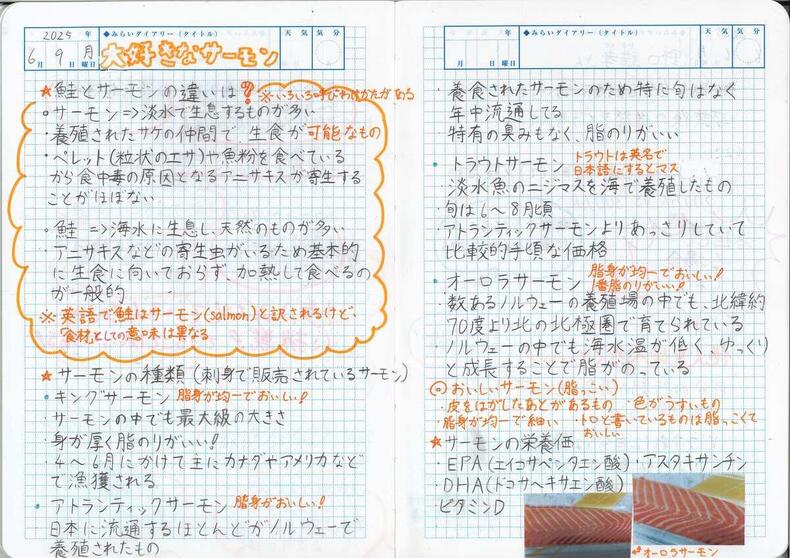 2025 年
◆みらいダイアリー(タイトル)
天気
気分
6月 9日 月曜日
大好きなサーモン
★鮭とサーモンの違いは?
※いろいろ呼びわけかたがある
・サーモン⇒淡水で生息するものが多い
・養殖されたサケの仲間で、生食が可能なもの
・ペレット(粒状のエサ)や魚粉を食べている
から食中毒の原因となるアニサキスが寄生する
ことがほぼない
・鮭 ⇒海水に生息し、天然のものが多い
・アニサキスなどの寄生虫がいるため基本的
に生食に向いておらず、加熱して食べるの
が一般的
※英語で鮭はサーモン(salmon)と訳されるけど、
「食材」としての意味は異なる
★サーモンの種類(刺身で販売されているサーモン)
・キングサーモン 脂身が均一でおいしい!
・サーモンの中でも最大級の大きさ
・身が厚く脂のりがいい!
・4~6月にかけて主にカナダやアメリカなど
で漁獲される
・アトランティックサーモン 脂身がおいしい!
日本に流通するほとんどがノルウェーで
養殖されたもの
年
◆みらいダイアリー(タイトル)
天気
気分
月 日 曜日
・養食されたサーモンのため特に旬はなく
年中流通してる
特有の臭みもなく、脂のりがいい
・トラウトサーモン トラウトは英名で
日本語にするとマス
・淡水魚のニジマスを海で養殖したもの
旬は6~8月頃
・アトランティックサーモンよりあっさりしていて
比較的手頃な価格
・オーロラサーモン 脂身が均一でおいしい!
1番脂のりがいい!
・数あるノルウェーの養殖場の中でも、北緯約
70度より北の北極圏で育てられている
・ノルウェーの中でも海水温が低く、ゆっくり
と成長することで脂がのっている
◎おいしいサーモン(脂っこい)
・皮をはがしたあとがあるもの ・色がうすいもの
・脂身が均一で細い ・トロと書いているものは脂っこくて
おいしい
★サーモンの栄養価
・EPA(エイコサペンタエン酸)・アスタキサンチン
・DHA(ドコサヘキサエン酸)
・ビタミンD
オーロラサーモン